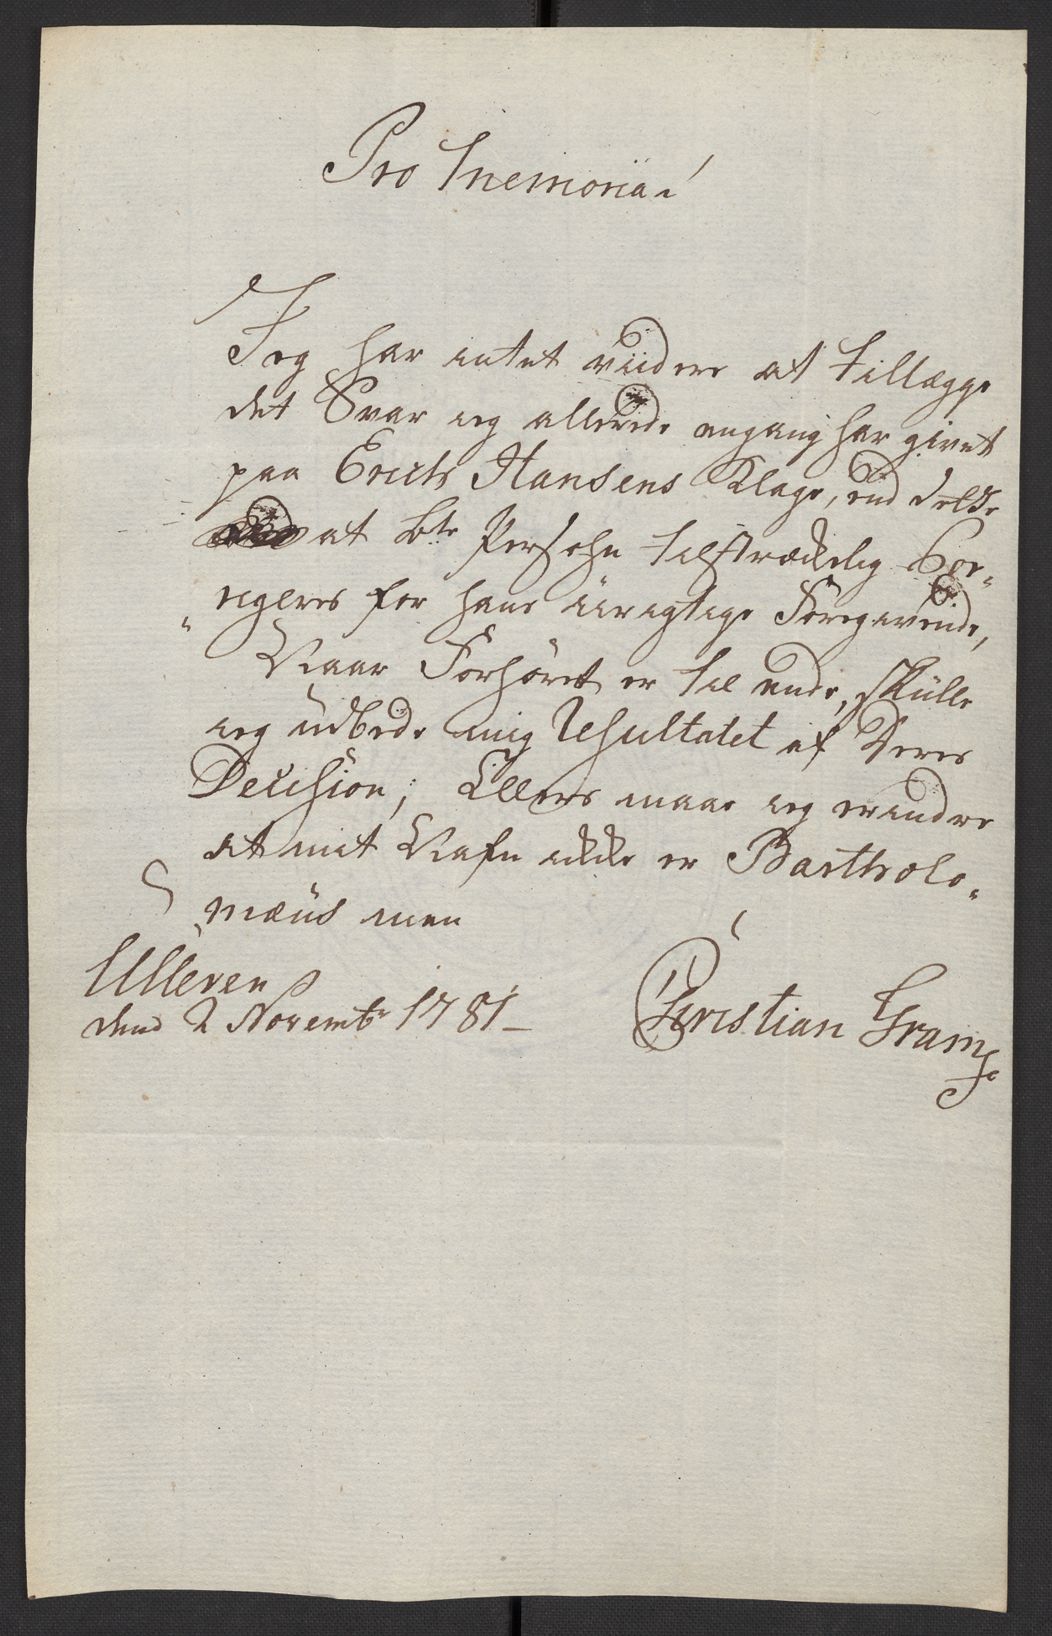 Pro Memoria!
Jeg har intet viidere at tillægge
det Svar jeg allerede engang har givet
paa Erich Hansens Klage, end dette
at bte Persohn tilstrækkelig Cor-
rigeres for hans urigtige Foregivende,
Naar Forhöret er til ende, skulle
jeg udbede mig Resultatet af Deres
Decision; Ellers maae jeg erindre
at mit Nafn ikke er Bartholo-
mæus men
Ulleren
dend 2 Novembr 1781 Christian Gram